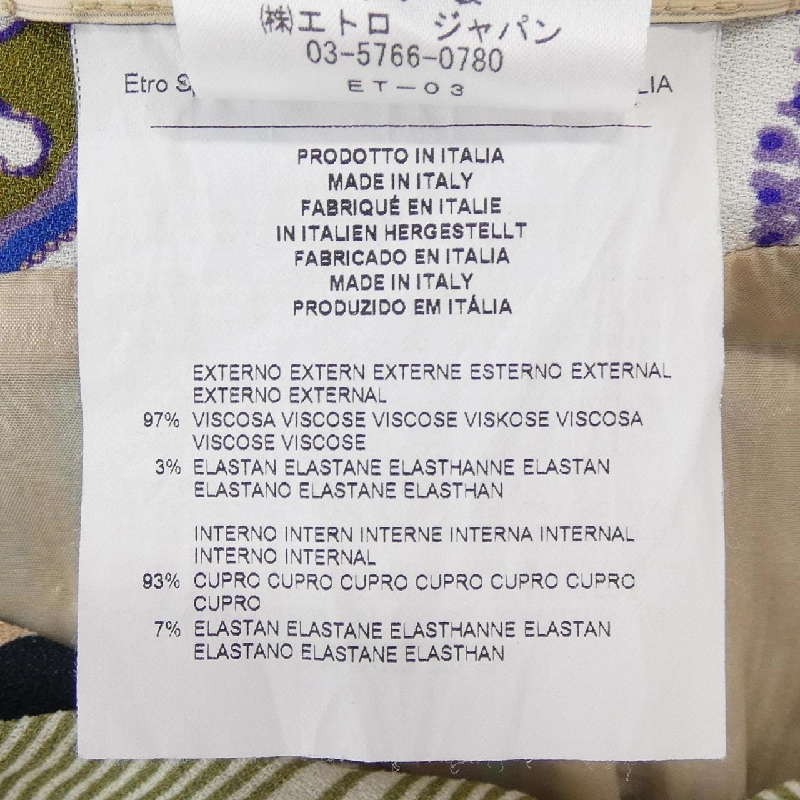 ㈱エトロ ジャパン
03-5766-0780
ET-03
Etro
PRODOTTO IN ITALIA
MADE IN ITALY
FABRIQUÉ EN ITALIE
IN ITALIEN HERGESTELLT
FABRICADO EN ITALIA
MADE IN ITALY
PRODUZIDO EM ITÁLIA
EXTERNO EXTERN EXTERNE ESTERNO EXTERNAL
EXTERNO EXTERNAL
97% VISCOSA VISCOSE VISCOSE VISKOSE VISCOSA
VISCOSE VISCOSE
3% ELASTAN ELASTANE ELASTHANNE ELASTAN
ELASTANO ELASTANE ELASTHAN
INTERNO INTERN INTERNE INTERNA INTERNAL
INTERNO INTERNAL
93% CUPRO CUPRO CUPRO CUPRO CUPRO CUPRO
CUPRO
7% ELASTAN ELASTANE ELASTHANNE ELASTAN
ELASTANO ELASTANE ELASTHAN